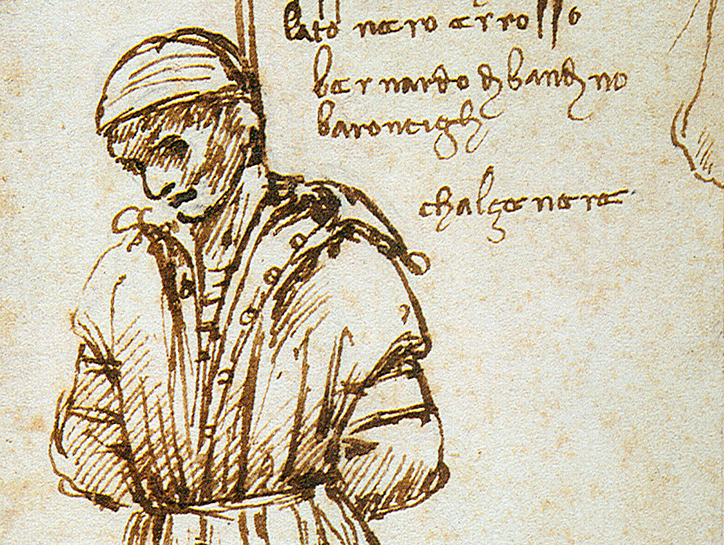 lato nero errosso
bernardo dj bandjno
barontigh
chalze nere